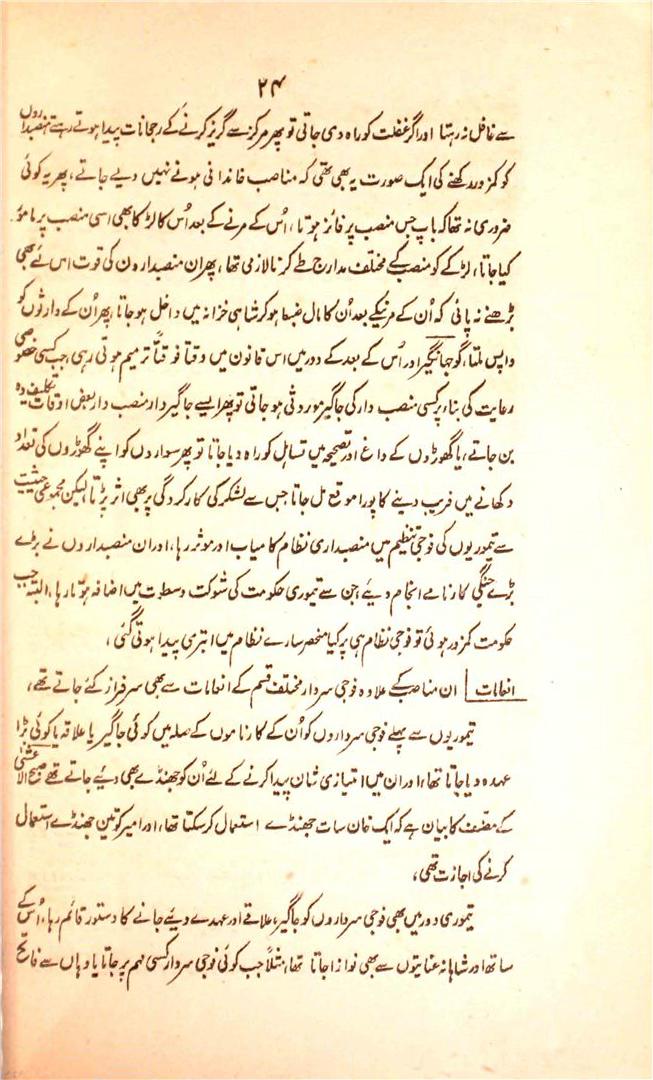 ۲۴
سے غافل نہ رہتا اور اگر غفلت کو راہ دی جاتی تو پھر مرکز سے گریز کرنے کے رجحانات پیدا ہوتے رہتے منصبداروں
کو کمزور رکھنے کی ایک صورت یہ بھی تھی کہ مناصب خاندانی ہونے نہیں دیے جاتے، پھر یہ کوئی
ضروری نہ تھا کہ باپ جس منصب پر فائز ہوتا، اُس کے مرنے کے بعد اُس کا لڑکا بھی اسی منصب پر مامور
کیا جاتا، لڑکے کو منصب کے مختلف مدارج طے کرنا لازمی تھا، پھر ان منصبداروں کی قوت اس لئے بھی
بڑھنے نہ پاتی کہ اُن کے مرنیکے بعد اُن کا مال ضبط ہو کر شاہی خزانہ میں داخل ہو جاتا، پھر اُن کے وارثوں کو
واپس ملتا، گو جہانگیر اور اُس کے بعد کے دور میں اس قانون میں وقتاً فوقتاً ترمیم ہوتی رہی، جب کسی خصوصی
رعایت کی بناء پر کسی منصب دار کی جاگیر موروثی ہو جاتی تو پھر ایسے جاگیردار منصب دار بعض اوقات تکلیف دہ
بن جاتے، یا گھوڑوں کے داغ اور تصحیحہ میں تساہل کو راہ دیا جاتا تو پھر سواروں کو اپنے گھوڑوں کی تعداد
دکھانے میں فریب دینے کا پورا موقع مل جاتا جس سے لشکر کی کارکردگی پر بھی اثر پڑتا، لیکن مجموعی حیثیت
سے تیموریوں کی فوجی تنظیم میں منصبداری نظام کامیاب اور موثر رہا، اور ان منصبداروں نے بڑے
بڑے جنگی کارنامے انجام دیئے، جن سے تیموری حکومت کی شوکت و سطوت میں اضافہ ہوتا رہا، البتہ جب
حکومت کمزور ہوئی تو فوجی نظام ہی پر کیا منحصر سارے نظام میں ابتری پیدا ہوتی گئی،
انعامات | ان مناصب کے علاوہ فوجی سردار مختلف قسم کے انعامات سے بھی سرفراز کئے جاتے تھے،
تیموریوں سے پہلے فوجی سرداروں کو اُن کے کارناموں کے صلہ میں کوئی جاگیر یا علاقہ یا کوئی بڑا
عہدہ دیا جاتا تھا، اور ان میں امتیازی شان پیدا کرنے کے لئے اُن کو جھنڈے بھی دیئے جاتے تھے صبح الاعشیٰ
کے مصنف کا بیان ہے کہ ایک خان سات جھنڈے استعمال کر سکتا تھا، اور امیر کو تین جھنڈے استعمال
کرنے کی اجازت تھی،
تیموری دور میں بھی فوجی سرداروں کو جاگیر، علاقے اور عہدے دیئے جانے کا دستور قائم رہا، اُس کے
ساتھ اور شاہانہ عنایتوں سے بھی نوازا جاتا تھا، مثلاً جب کوئی فوجی سردار کسی مہم پر جاتا یا وہاں سے فاتح